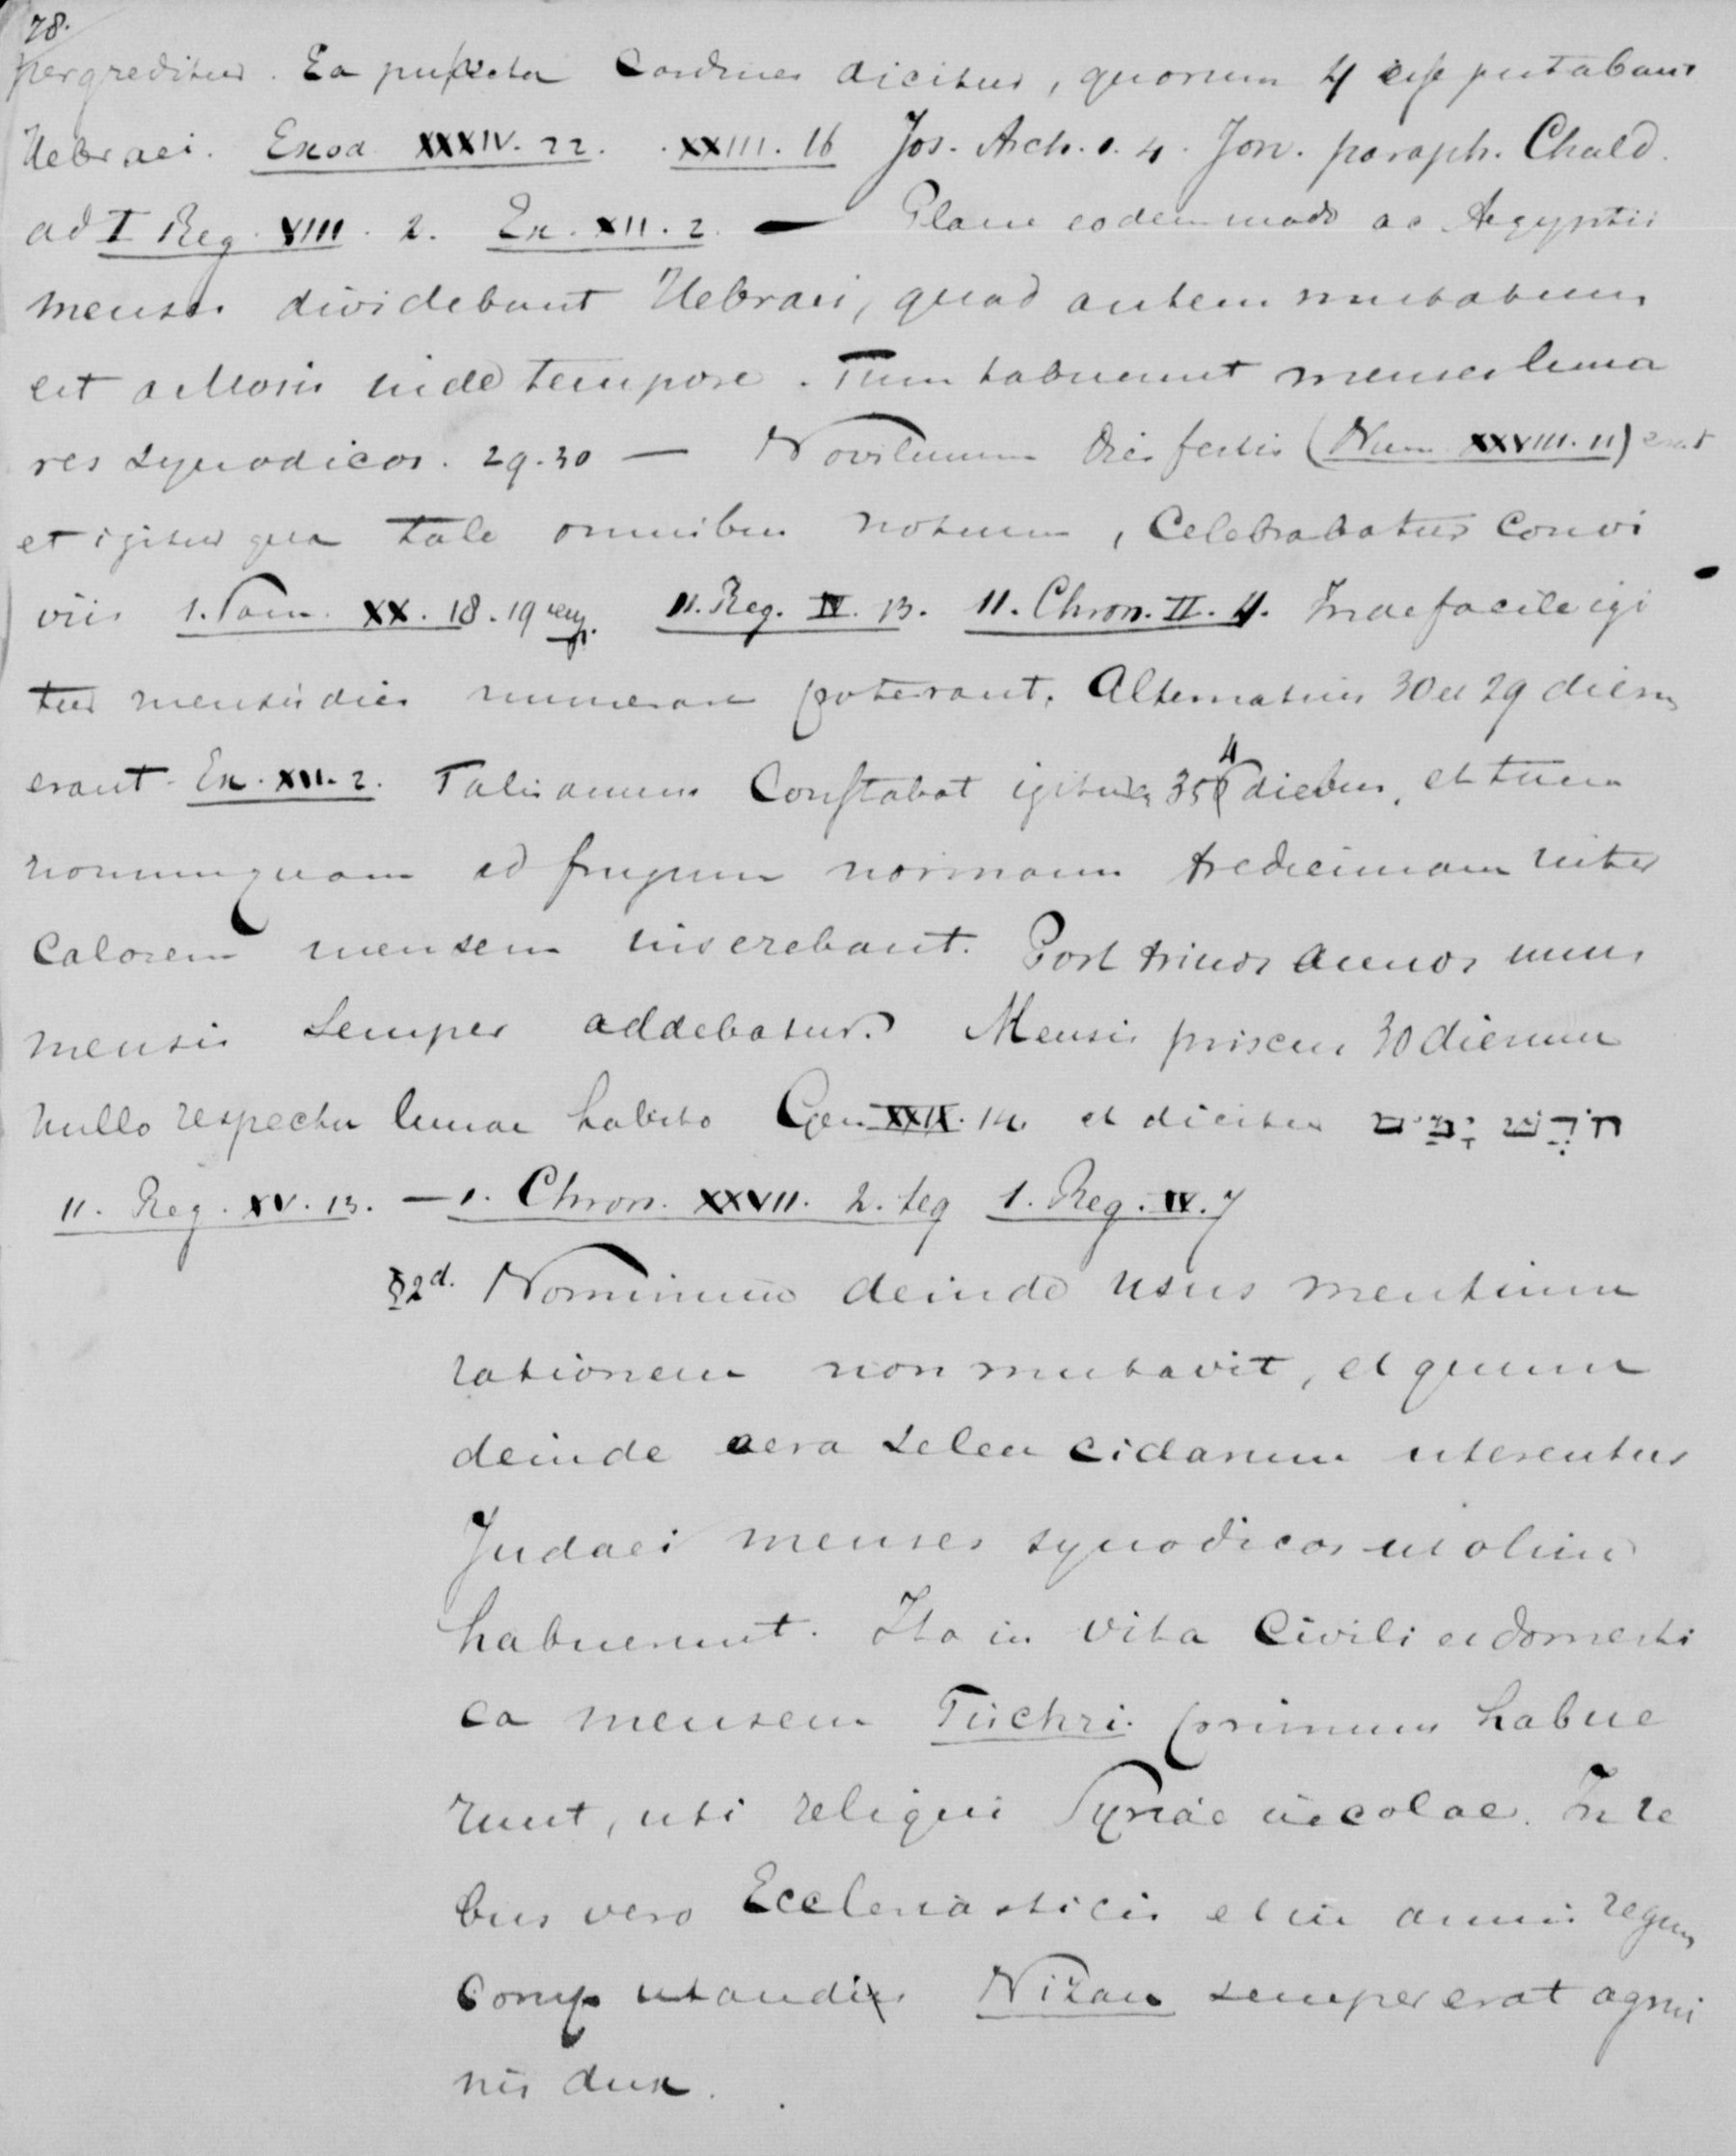 78.
pergreditur. Ea puncta Cardines dicitur, quorum 4 esse putabant
Hebraei. Exod XXXIV. 22. XXIII. 16 Jos. Arch. 1. 4. Jon. paraph. Chald.
ad I Reg. VIII. 2. Ex. XII. 2. — Plane eodem modo ac Aegyptii
menses dividebant Hebraei, quod autem mutatum
est a Mosis inde tempore. Tum habuerunt menses luna
res synodicos. 29.30 — Novilunium dies festis (Num XXVIII. 11) erat
et igitur qua tale omnibus notum, Celebrabatur Convi
viis 1. Sam. XX. 18. 19 seq. II. Reg. IV. 13. II. Chron. II. 4. facile igi
tur mensis dies numerare poterant. Alternatius 30 et 29 dierum
erant Ex. XII. 2. Talis annus Constabat igitur 354 diebus, et tum
nonnunquam ad frugum normam tredecimam inter
Calarem mensem inserebant. Post trinos annos unus
mensis Semper addebatur. Mensis priscus 30 dierum
nullo respectu lunae habito Gen XXIX. 14. et dicitur חֹדֶשׁ יָמִים
II. Reg. XV. 13. — 1. Chron. XXVII. 2. seq 1. Reg. IV. 7
§2d. Nominum deinde usus mensium
rationem non mutavit, et quum
deinde aera Seleucidarum uterentur
Judaei menses synodicos ut olim
habuerunt. Ita in vita Civili et domesti
ca mensem Tischri primum habue
runt, uti reliqui Syriae incolae. In re
bus vero Ecclesiasticis et in annis regum
Computandis Nisan semper erat agmi
nis dux.